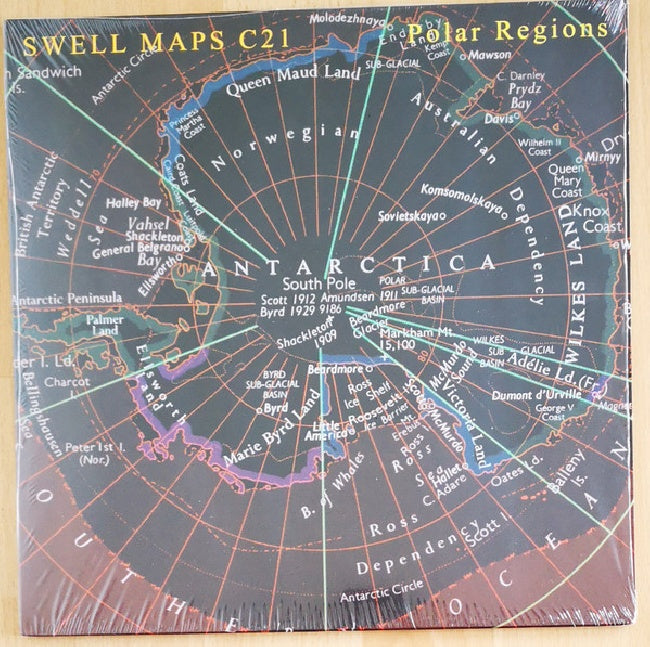 SWELL MAPS C21
Polar Regions
Molodezhnayao
Enderby
Land
Kemp
Coast
Mawson
SUB-GLACIAL
Antarctic Circle
Sandwich
Is.
Queen Maud Land
C. Darnley
Prydz
Bay
Davis
Princess
Martha
Coast
Norwegian
Australian
Dependency
Wilhelm II
Coast
Mirnyy
Queen
Mary
Coast
Knox
Coast
Coats Land
Caird Coast
Luitpold
British Antarctic
Territory
Weddell
Sea
Halley Bay
Vahsel
Shackleton
General Belgrano
Bay
Ellsworth
Komsomolskayao
Sovietskayao
WILKES LAND
ANTARCTICA
South Pole
Scott 1912 Amundsen 1911
Byrd 1929 9186
POLAR
SUB-GLACIAL
BASIN
Antarctic Peninsula
Palmer
Land
Shackleton
1909
Beardmore
Glacier
Markham Mt.
15,100
WILKES
SUB GLACIAL
BASIN
Adélie Ld.(Fr
Dumont d'Urville
George V
Coast
Magne
der I. Ld.
Charcot
I.
Bellingshausen
Sea
Ellsworth
Land
BYRD
SUB-GLACIAL
BASIN
Byrd
Beardmore
Ross
Ice Shelf
Roosevelt I.
Ice Barrier
McMurdo
Sound
Victoria Land
McMurdo
Mt.
Erebus
Ross
I.
Little
America
Marie Byrd Land
Peter Ist I.
(Nor.)
B. of Whales
Ross
Sea
Hallet
C. Adare
Oates Ld.
Balleny
Is.
Ross
Dependency
Scott I.
Antarctic Circle
SOUTHE
OCEAN